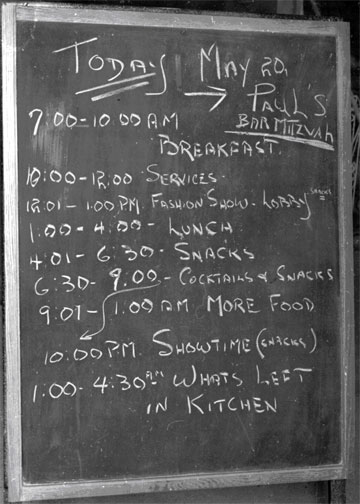 TODAY MAY 20,
→ PAUL'S
BAR MITZVAH
7:00-10:00 AM
BREAKFAST.
10:00-12:00 SERVICES.
12:01-1:00 PM. FASHION SHOW - LOBBY SNACKS
1:00-4:00- LUNCH
4:01-6:30- SNACKS
6:30-9:00- COCKTAILS & SNACKS
9:01-1:00 AM MORE FOOD
10:00 PM. SHOWTIME (SNACKS)
1:00-4:30 AM WHATS LEFT
IN KITCHEN